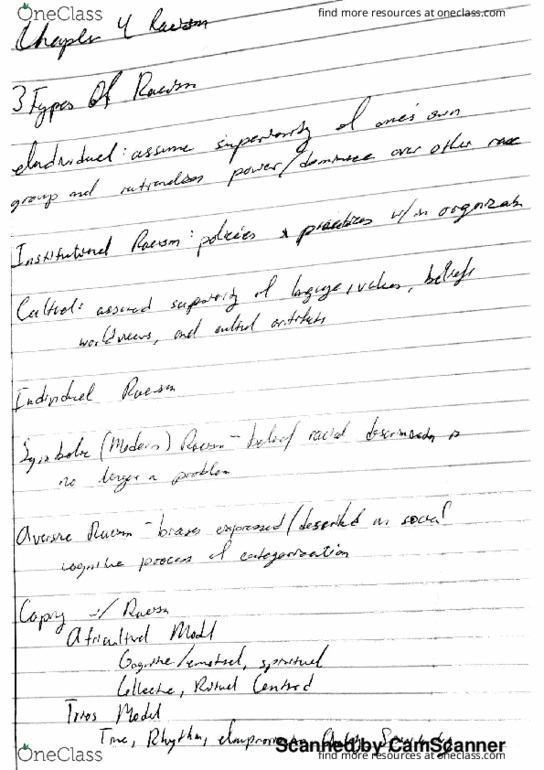 OneClass
find more resources at oneclass.com
Chapter 4 Racism
3 Types Of Racism
Individual: assume superiority of one's own
group and rationalizes power/dominance over other race
Institutional Racism: policies & practices w/in organization
Cultural: assumed superiority of language, values, beliefs
worldviews, and cultural artifacts
Individual Racism
Symbolic (Modern) Racism - belief racial discrimination is
no longer a problem
Aversive Racism - biases expressed/described in social
cognitive process of categorization
Coping w/ Racism
Africultural Model
Cognitive/emotional, spiritual
Collective, Ritual Centered
Trios Model
Time, Rhythm, Improvisation
Scanned by CamScanner
OneClass
find more resources at oneclass.com